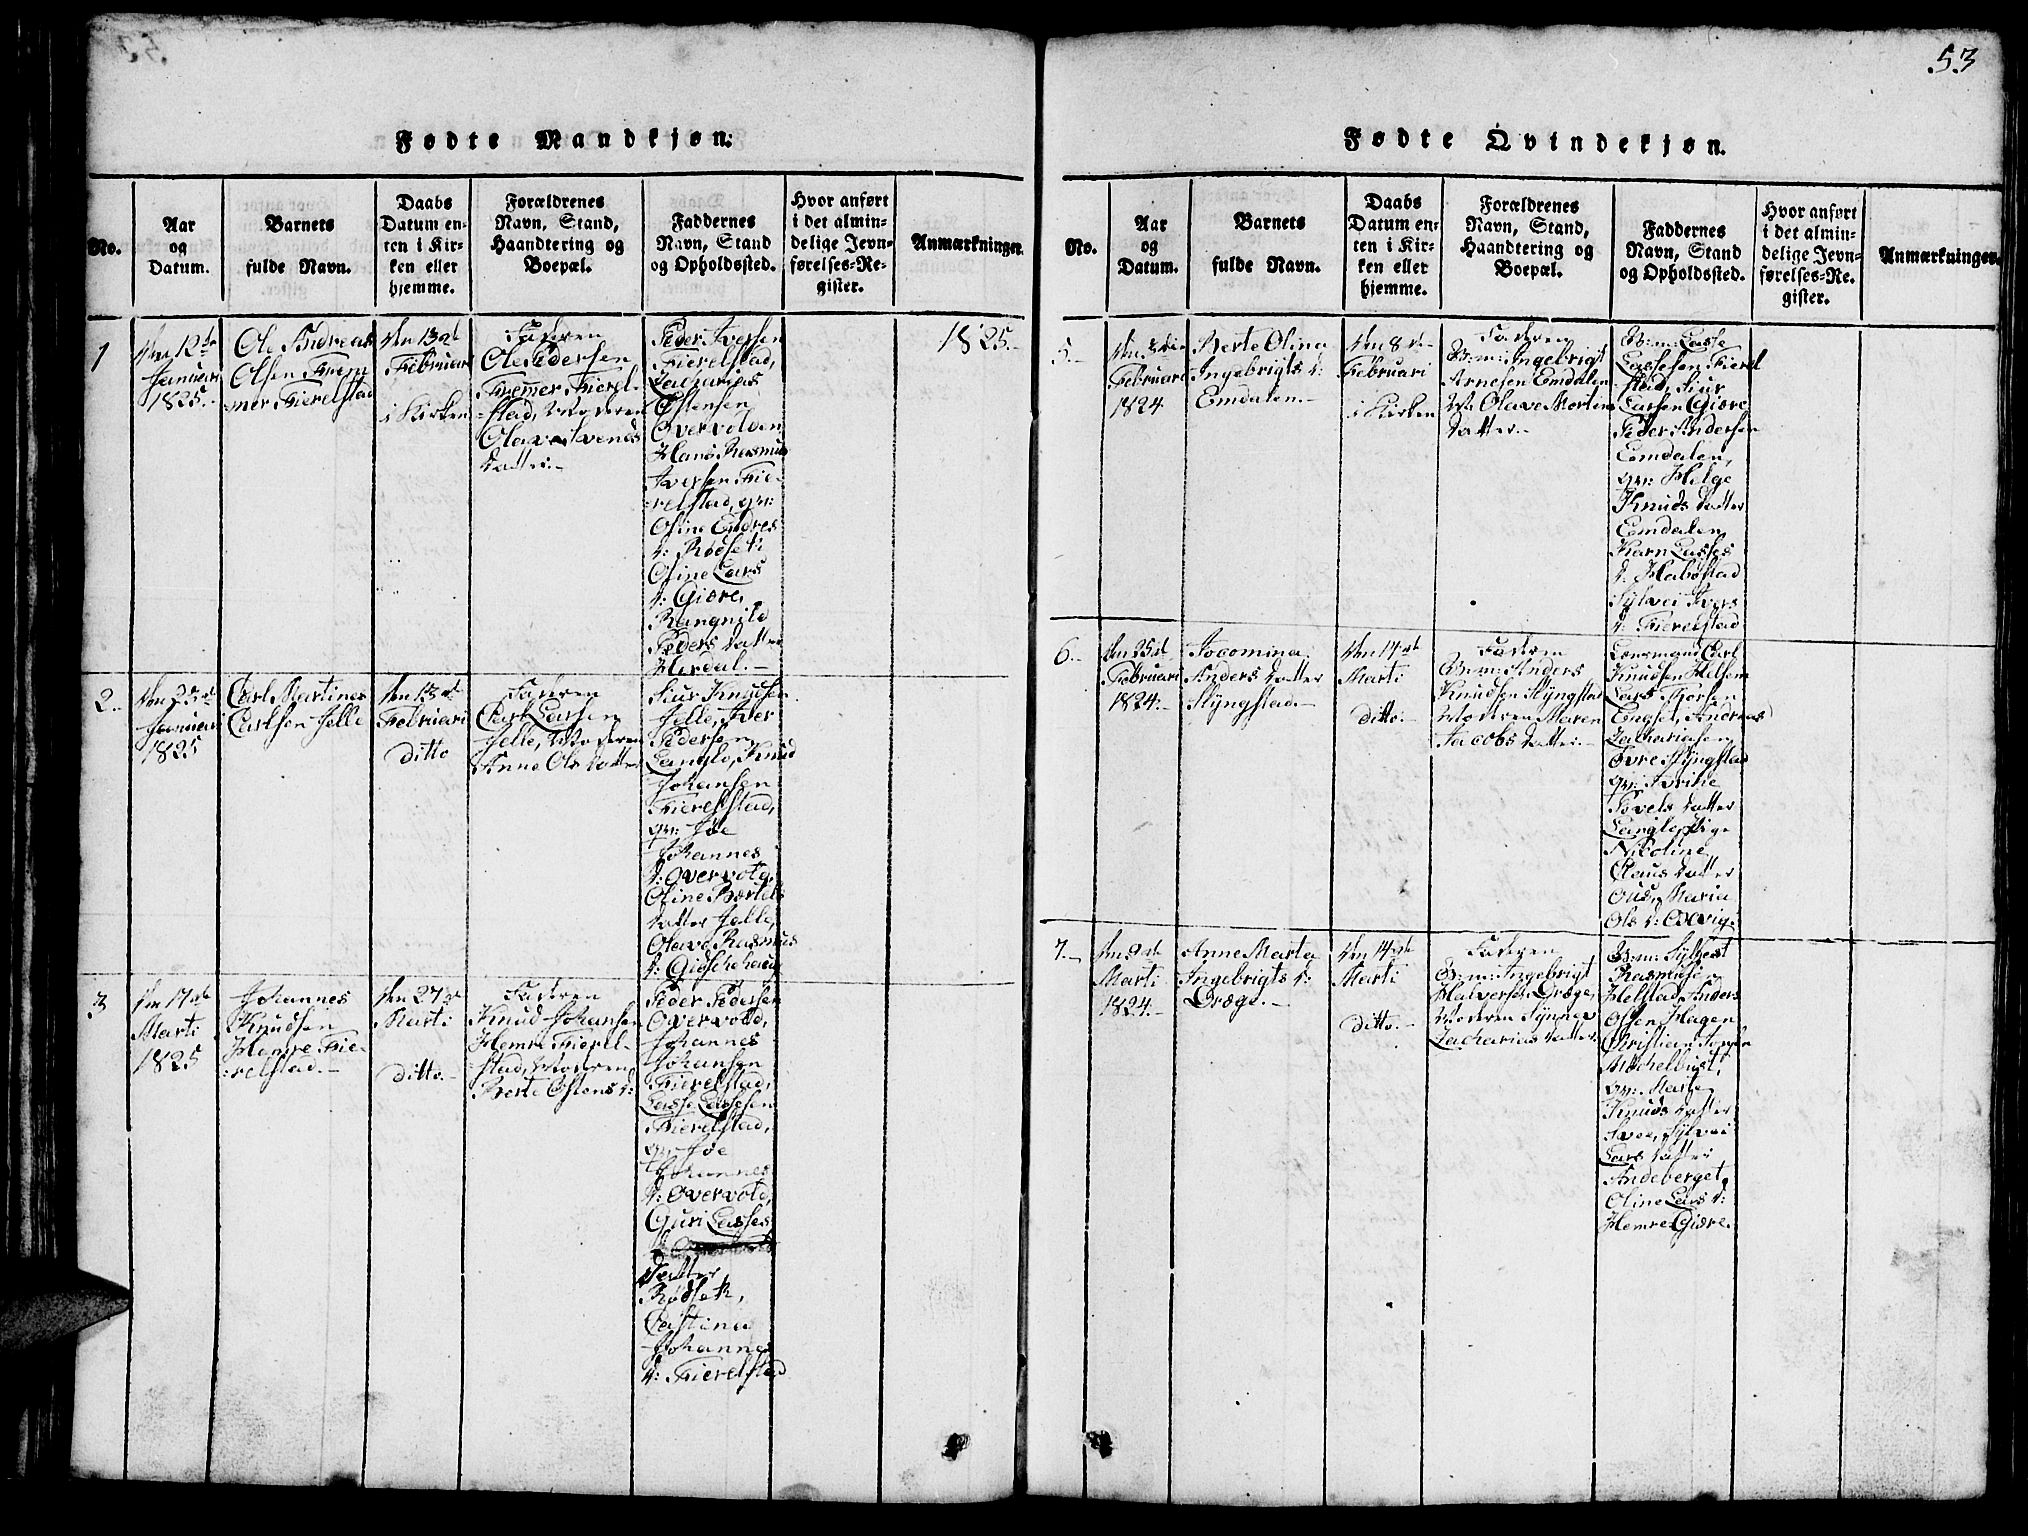 53
Fødte Mandkjøn.
No.
Aar
og
Datum.
Barnets
fulde Navn.
Daabs
Datum en-
ten i Kir-
ken eller
hjemme.
Forældrenes
Navn, Stand,
Haandtering og
Boepæl.
Faddernes
Navn, Stand
og Opholdssted.
Hvor anført
i det almin-
delige Jevn-
førelses-Re-
gister.
Anmærkninger.
1825.
1
den 12te
Januari
1825.
Ole Andreas
Olsen Frem
mer Fierelstad
den 13de
Februari
i Kirken
Faderen
Ole Pedersen
Fremer Fierel-
stad, Moderen
Olave Svends
datter.
Peder Iversen
Fierelstad,
Zacharias
Østensen
Overvolden
Hans Rasmus
Iversen Fie-
relstad, qv:
Oline Endres
d: Rødset
Oline Lars
d: Giøre,
Rangnild
Peders datter
Herdal.
2.
den 23de
Januari
1825
Carl Martines
Carlsen Jelle
den 13de
Februari
ditto
Faderen
Carl Larsen
Jelle, Moderen
Anne Ols datter
Siur Knudsen
Jelle, Iver
Pedersen
Langlo, Knud
Johansen
Fierelstad,
qv: Joe
Johannes
d: Overvold,
Oline Bertels
datter Jelle,
Olave Rasmus
d: Gidschehaug
3
den 17de
Marti
1825
Johannes
Knudsen
Hemre Fie-
relstad.
den 27de
Marti
ditto.
Faderen
Knud Johansen
Hemre Fierel-
stad, Moderen
Berte Østens d:
Peder Pedersen
Overvold,
Johannes
Johansen
Fierelstad,
Lasse Lassesen
Fierelstad,
qv: Joe
Johannes
d: Overvold,
Guri Lasses
datter
Rødset,
Castina
Johannes
d: Fierelstad
Fødte Qvindekjøn.
No.
Aar
og
Datum.
Barnets
fulde Navn.
Daabs
Datum en-
ten i Kir-
ken eller
hjemme.
Forældrenes
Navn, Stand,
Haandtering og
Boepæl.
Faddernes
Navn, Stand
og Opholdssted.
Hvor anført
i det almin-
delige Jevn-
førelses-Re-
gister.
Anmærkninger.
5.
den
Februari
1824
Berte Olina
Ingebrigts d:
Emdalen.
den 8de
Februari
i Kirken
Faderen
G: m: Ingebrigt
Arnesen Emdalen
Olave Mortins
datter.
G: m: Lasse
Lassesen Fierel
stad, Siur
Larsen Giøre
Peder Andersen
Emdalen,
qv: Helge
Knuds datter
Emdalen
Karn Lasses
d: Habostad
Sylvei Ivers
d: Fierelstad
6.
den 25de
Februari
1824.
Jocomina
Anders datter
Slyngstad.
den 14de
Marti
ditto.
Faderen
G: m: Anders
Knudsen Slyngstad
Moderen Maren
Jacobs datter.
Lensmand Carl
Knudsen Helsem
Lars
Engset, Andreas
Zachariasen
Øvre Slyngstad
qv:
datter
Langlo, Pige
Nikoline
Claus datter
Gud, Maria
Ols d:
7.
den 9de
Marti
1824.
Anne Marta
Ingebrigts d:
Drage.
den 14de
Marti
ditto.
Faderen
G: m: Ingebrigt
Halversen Drage,
Moderen Synnev
Zacharias datter
G: m: Sylfest
Rasmusen
Helstad, Anders
Olsen Hagen
Christian
Mochelbust,
qv: Marte
Knuds datter
Svoe, Sylvei
Lars datter
Andeberget,
Oline Lars d:
Hemre Giøre.